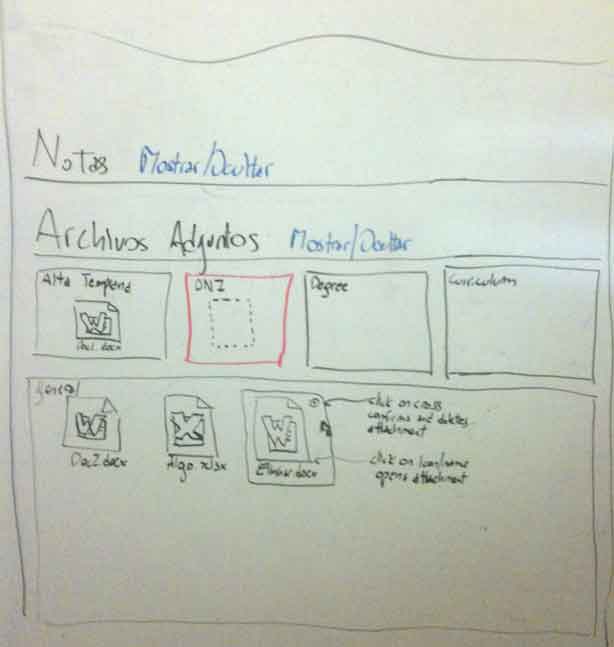 Notas Mostrar/Ocultar
Archivos Adjuntos Mostrar/Ocultar
Alta
Doc1.docx
DNI
Degree
Curriculum
General
Doc2.docx
Algo.xlsx
click on cross
confirms and deletes
attachment
click on icon/name
opens attachment